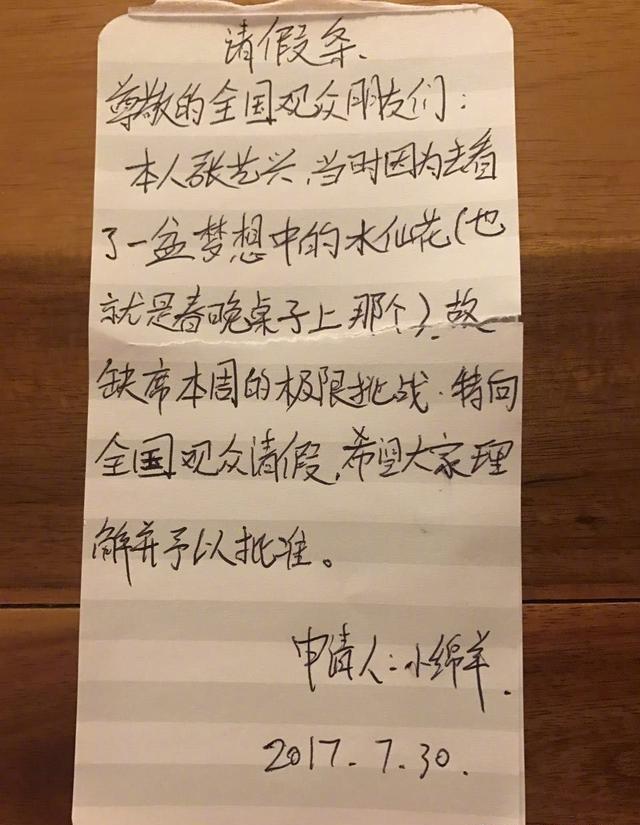 请假条.
尊敬的全国观众朋友们:
本人张艺兴,当时因为去看
了一盆梦想中的水仙花(也
就是春晚桌子上那个).故
缺席本周的极限挑战.特向
全国观众请假,希望大家理
解并予以批准。
申请人:小绵羊.
2017.7.30.